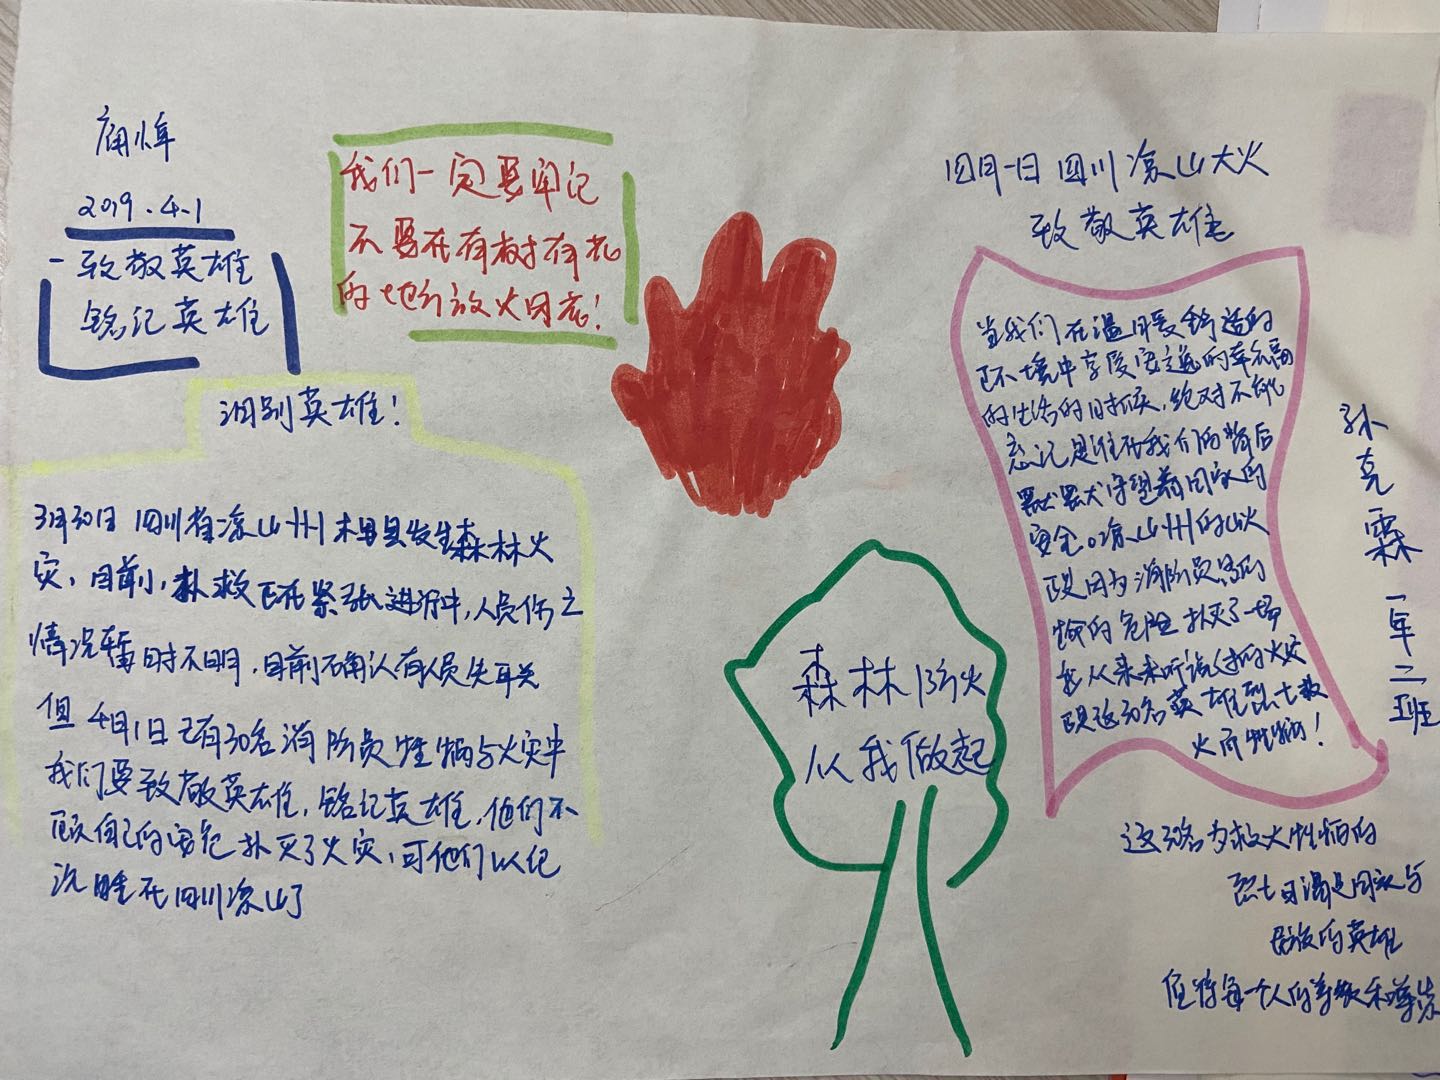 2019.4.1
致敬英雄
铭记英雄
我们一定要牢记
不要在有树有花
的地方放火因素！
泪别英雄！
3月30日 四川省凉山州木里县发生森林火
灾，目前，扑救正在紧张进行中，人员伤亡
情况暂时不明，目前确认有人员失联
但4月1日已有30名消防员牺牲与火灾中
我们要致敬英雄，铭记英雄，他们不
顾自己的安危扑灭了火灾，可他们以纪
沉睡在四川凉山了
森林防火
从我做起
四月一日四川凉山大火
致敬英雄
当我们在温暖舒适的
环境中享受安逸的幸福
的生活的时候，绝对不能
忘记是谁在我们的背后
默默守望着国家的
安全。凉山州的山火
是因为消防员冒
生命的危险扑灭了一场
我从来未听说过的火灾
是这30名英雄烈士救
火而牺牲！
这30名为救火牺牲的
烈士日满是国家与
民族的英雄
值得每一个人的尊敬和尊
孙克霖 一年二班